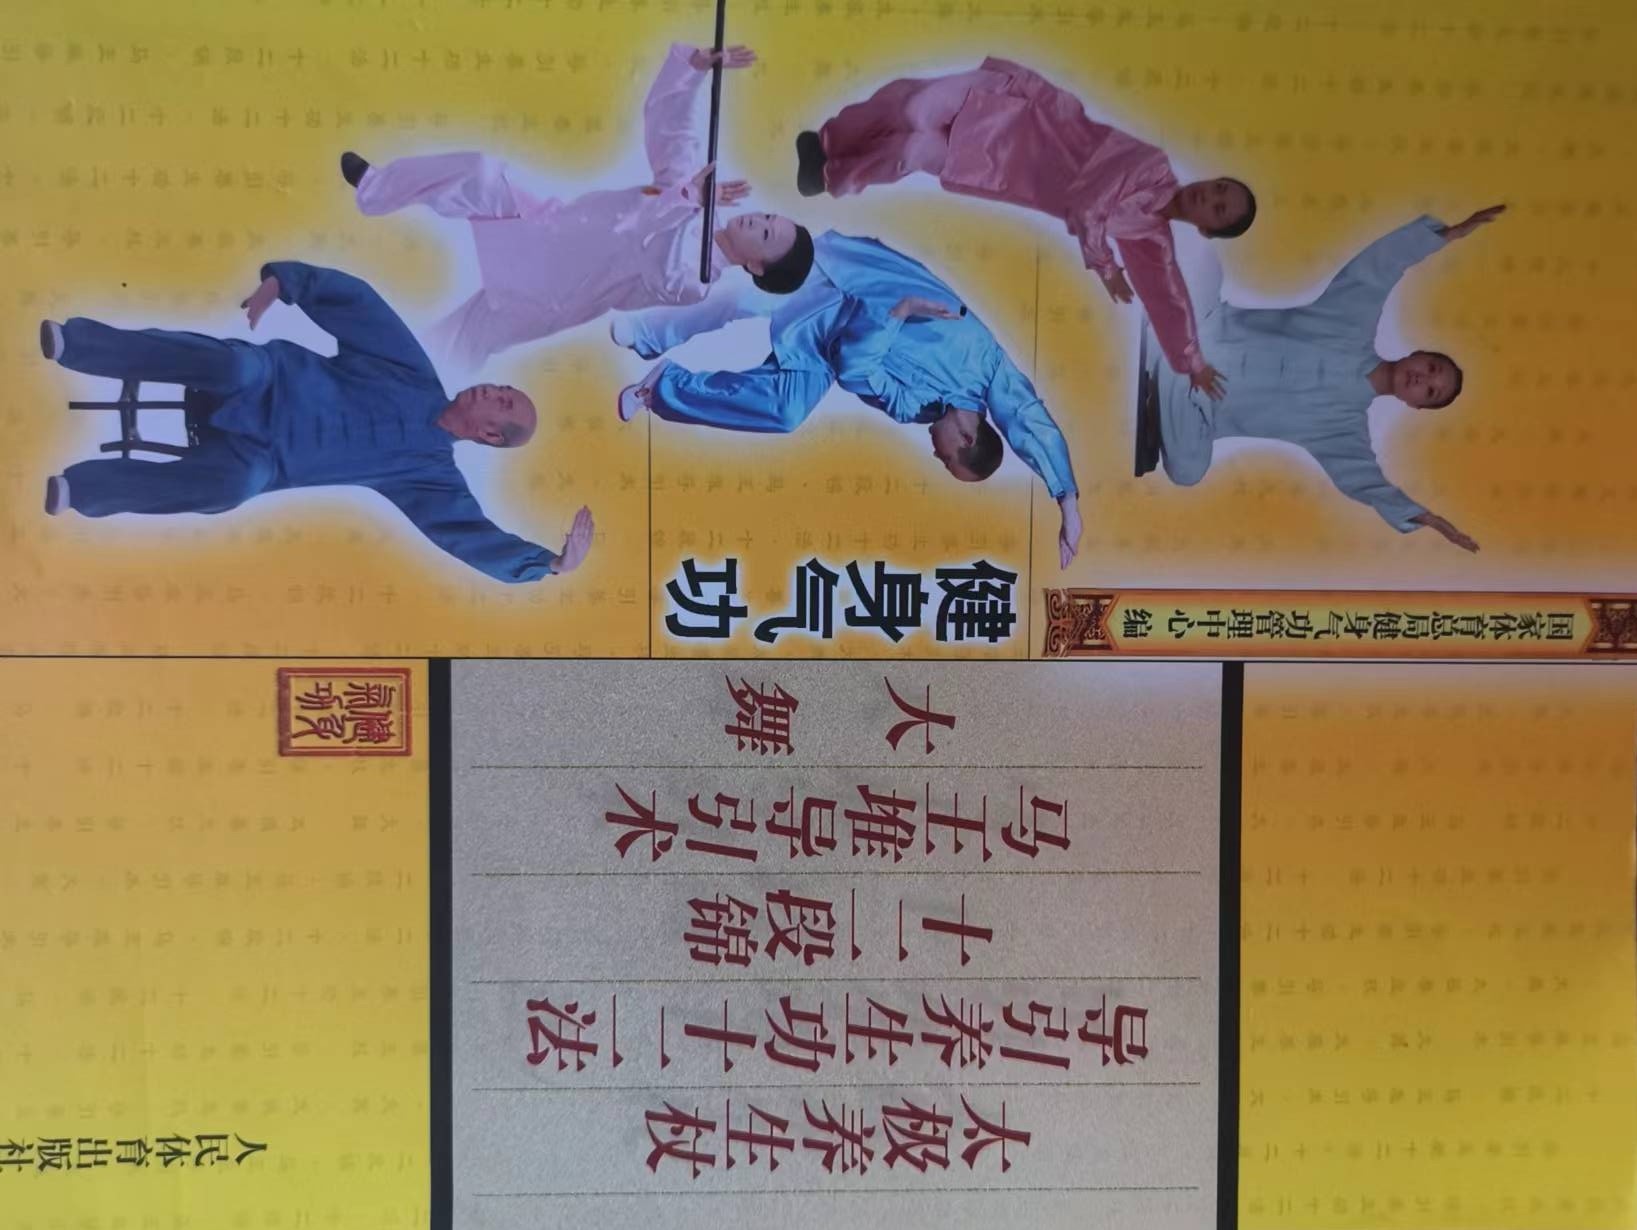 国家体育总局健身气功管理中心 编
健身气功
太极养生杖
导引养生功十二法
十二段锦
马王堆导引术
大舞
健身气功
人民体育出版社